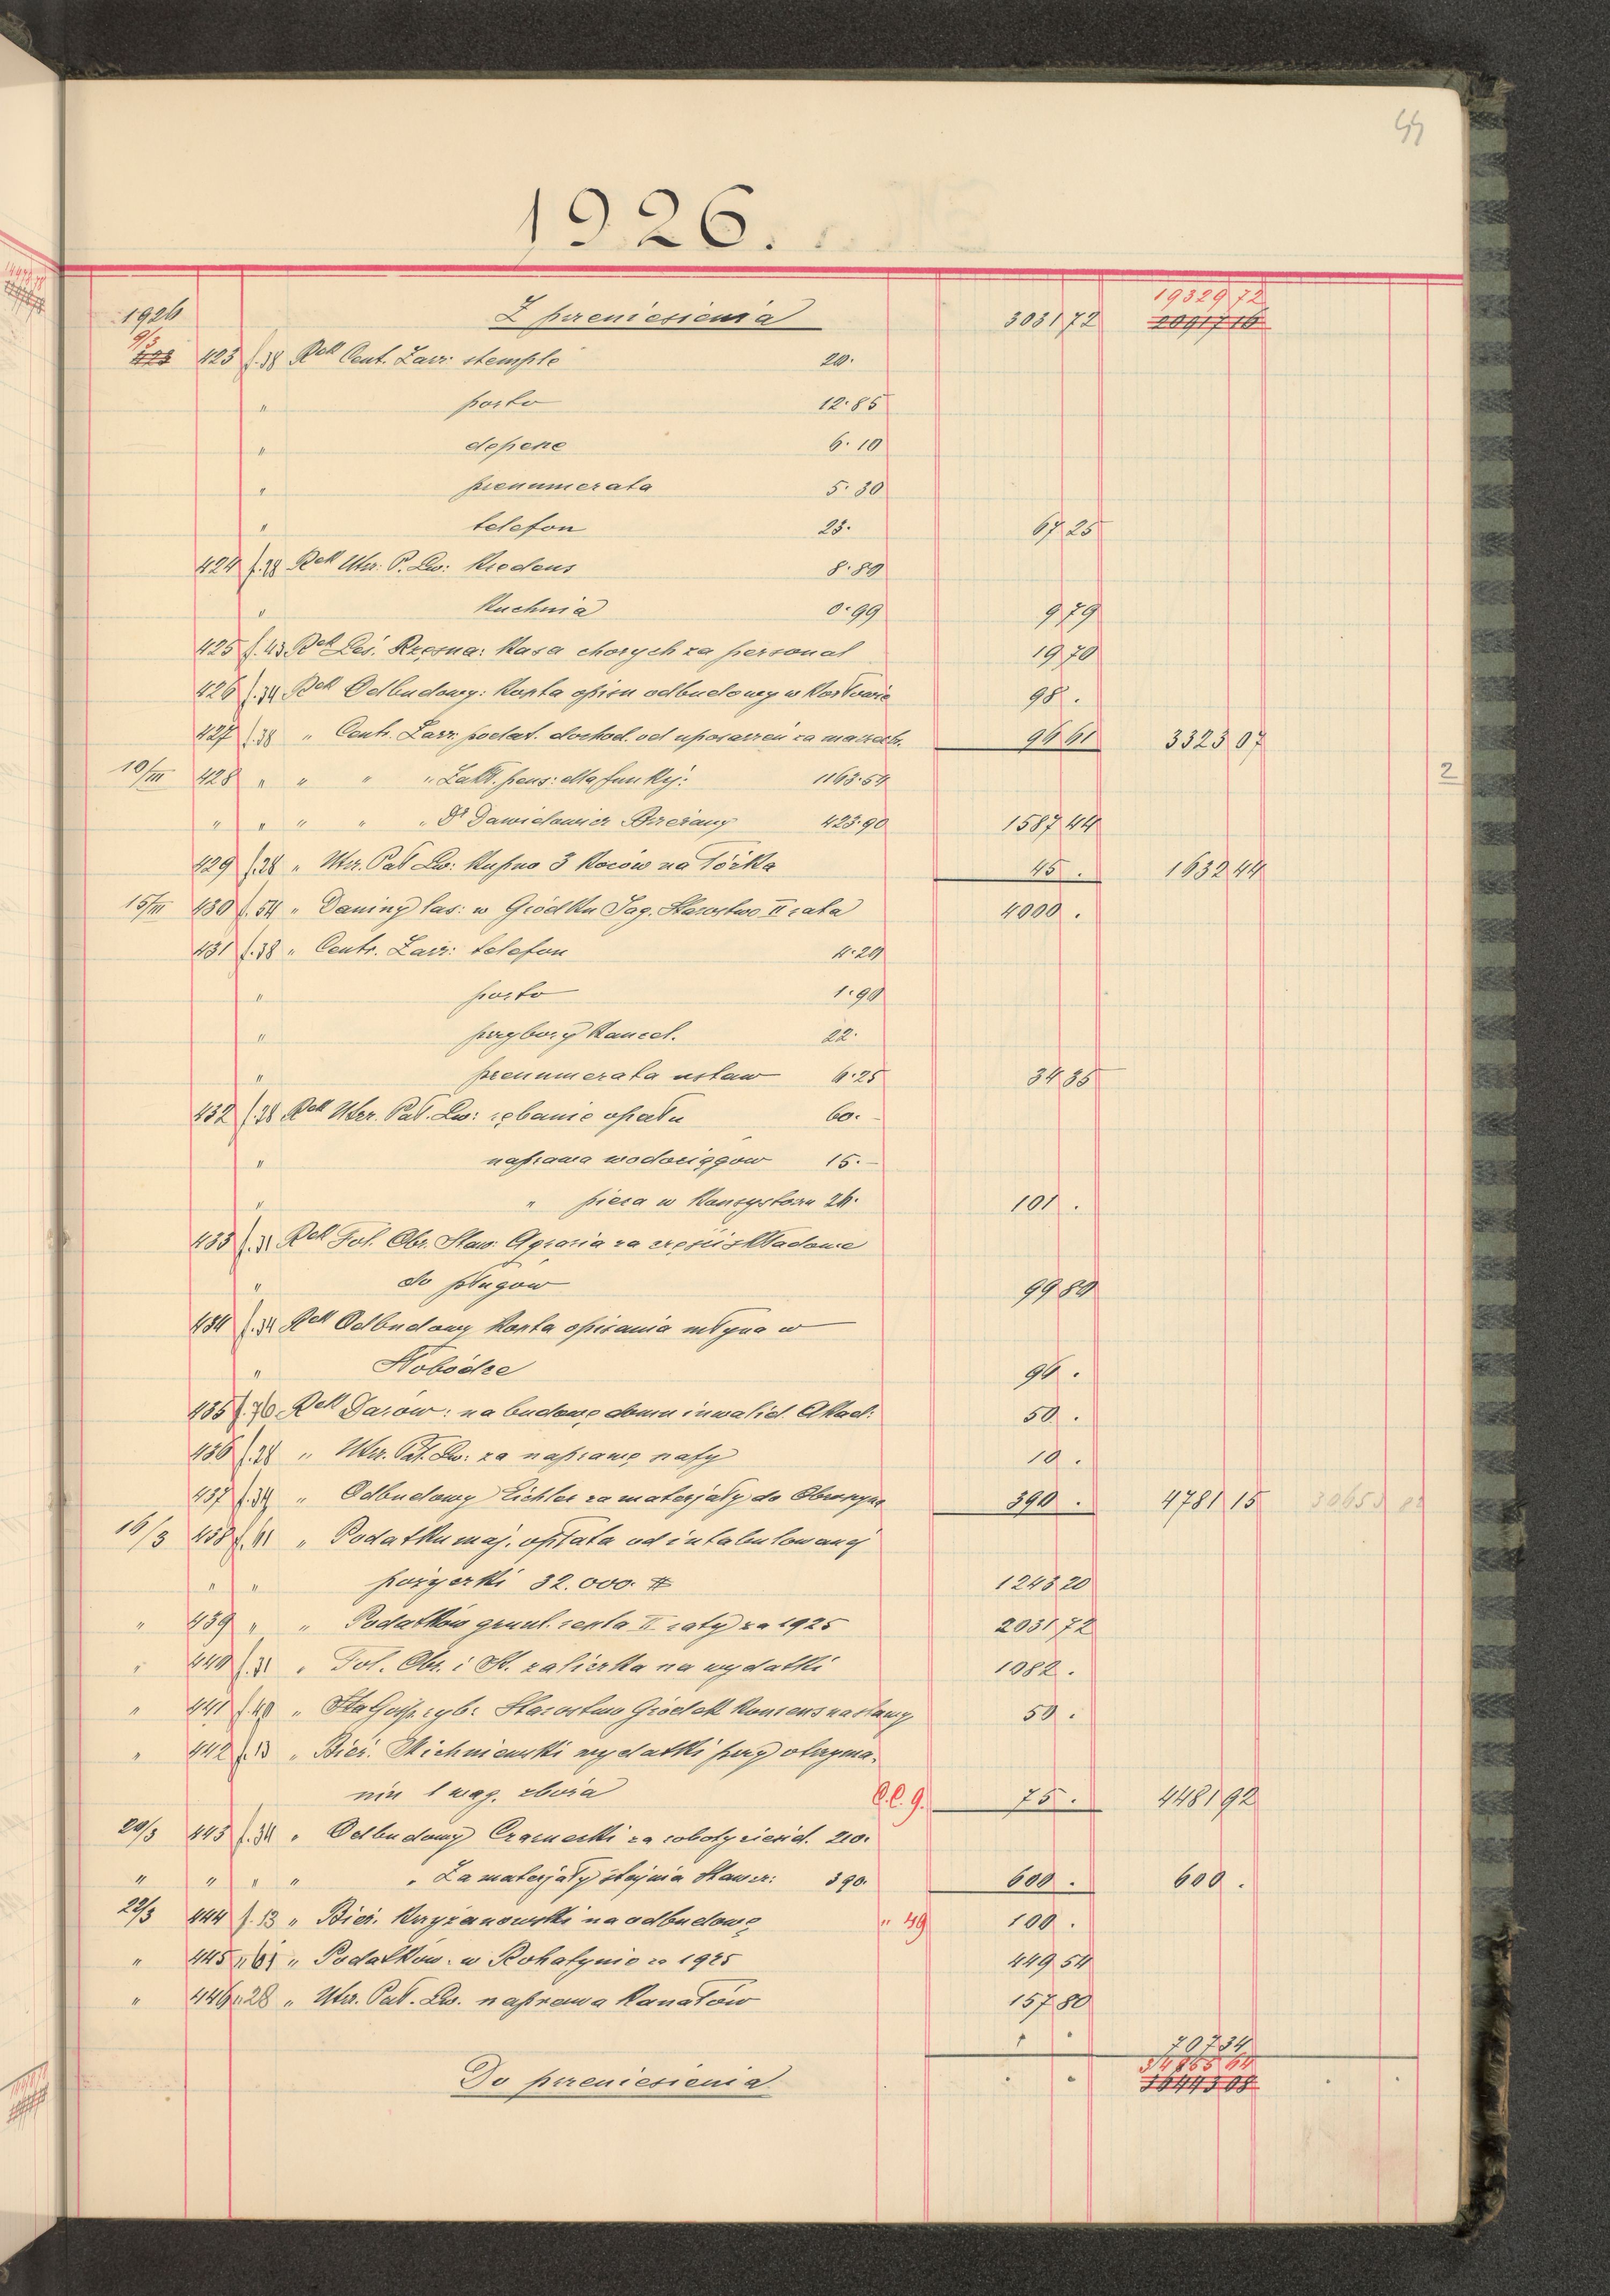 44
1926.
1926 Z przeniesienia 3031 72 19329 72
20917 16
9/3 423 f.38 Rek Cent. Zarz: stemple 20.
" porto 12.85
" depesze 6.10
" prenumerata 5.30
" telefon 23. 67 25
424 f.28 Rek Utrz: P. Lw: Kredens 8.80
" Kuchnia 0.99 9 79
425 f.43 Rek Leś. Rzęsna: Kasa chorych za personal 19 70
426 f.34 Rek Odbudowy: Koszta opisu odbudowy w 98 .
427 f.38 " Centr. Zarz: podat. dochod. od uposażeń za 96 61 3323 07
10/III 428 " " " " Zakł. pens: 1163.54
" " " " " Dr Dawidowicz Brzeżany 423.90 1587 44
429 f.28 " Utrz. Pał. Lw: Kupno 3 Koców na łóżka 45 . 1632 44
15/III 430 f.54 " Daniny las: w Gródku Jag. Starostwo II rata 4000 .
431 f.38 " Centr. Zarz: telefon 4.20
" porto 1.90
" przybory Kancel. 22.
" prenumerata ustaw 6.25 34 35
432 f.28 Rek Utrz. Pał. Lw: rębanie opału 60.-
" naprawa wodociągów 15.-
" " pieca w Konsystorzu 26. 101 .
433 f.31 Rek Fol. Obr. Staw. Agraria za części składowe
" do pługów 99 80
434 f.34 Rek Odbudowy Koszta opisania młyna w
" 96 .
435 f.70 Rek Darów: na budowę domu inwalid. Akad: 50 .
436 f.28 " Utrz. Pał. Lw: za naprawę 10 .
437 f.34 " Odbudowy Eichler za materjały do Obroszyna 390 . 4781 15 30653 82
16/3 438 f.61 " Podatku maj. opłata od intabulowanej
" " pożyczki 32.000. # 1243 20
" 439 " " Podatków grunt. reszta II raty za 1925 2031 72
" 440 f.31 " Fol. Obr. i St. zaliczka na wydatki 1082 .
" 441 f.40 " Starostwo Gródek Konsens na stawy 50 .
" 442 f.13 " Bież. Michniewski wydatki przy otrzyma-
niu 1 wag. zboża C.C. 9. 75 . 4481 92
20/3 443 f.34 " Odbudowy Czarnecki za roboty ciesid. 210.
" " " " " Za materjały stajnia Stawcz: 390. 600 . 600 .
22/3 444 f.13 " Bież. Kryżanowski na odbudowę " 49 100 .
" 445 " 61 " Podatków: w Rohatynie za 1925 449 54
" 446 " 28 " Utrz. Pał. Lw. naprawa Kanałów 157 80
707 34
34855 64
Do przeniesienia 36443 08
2